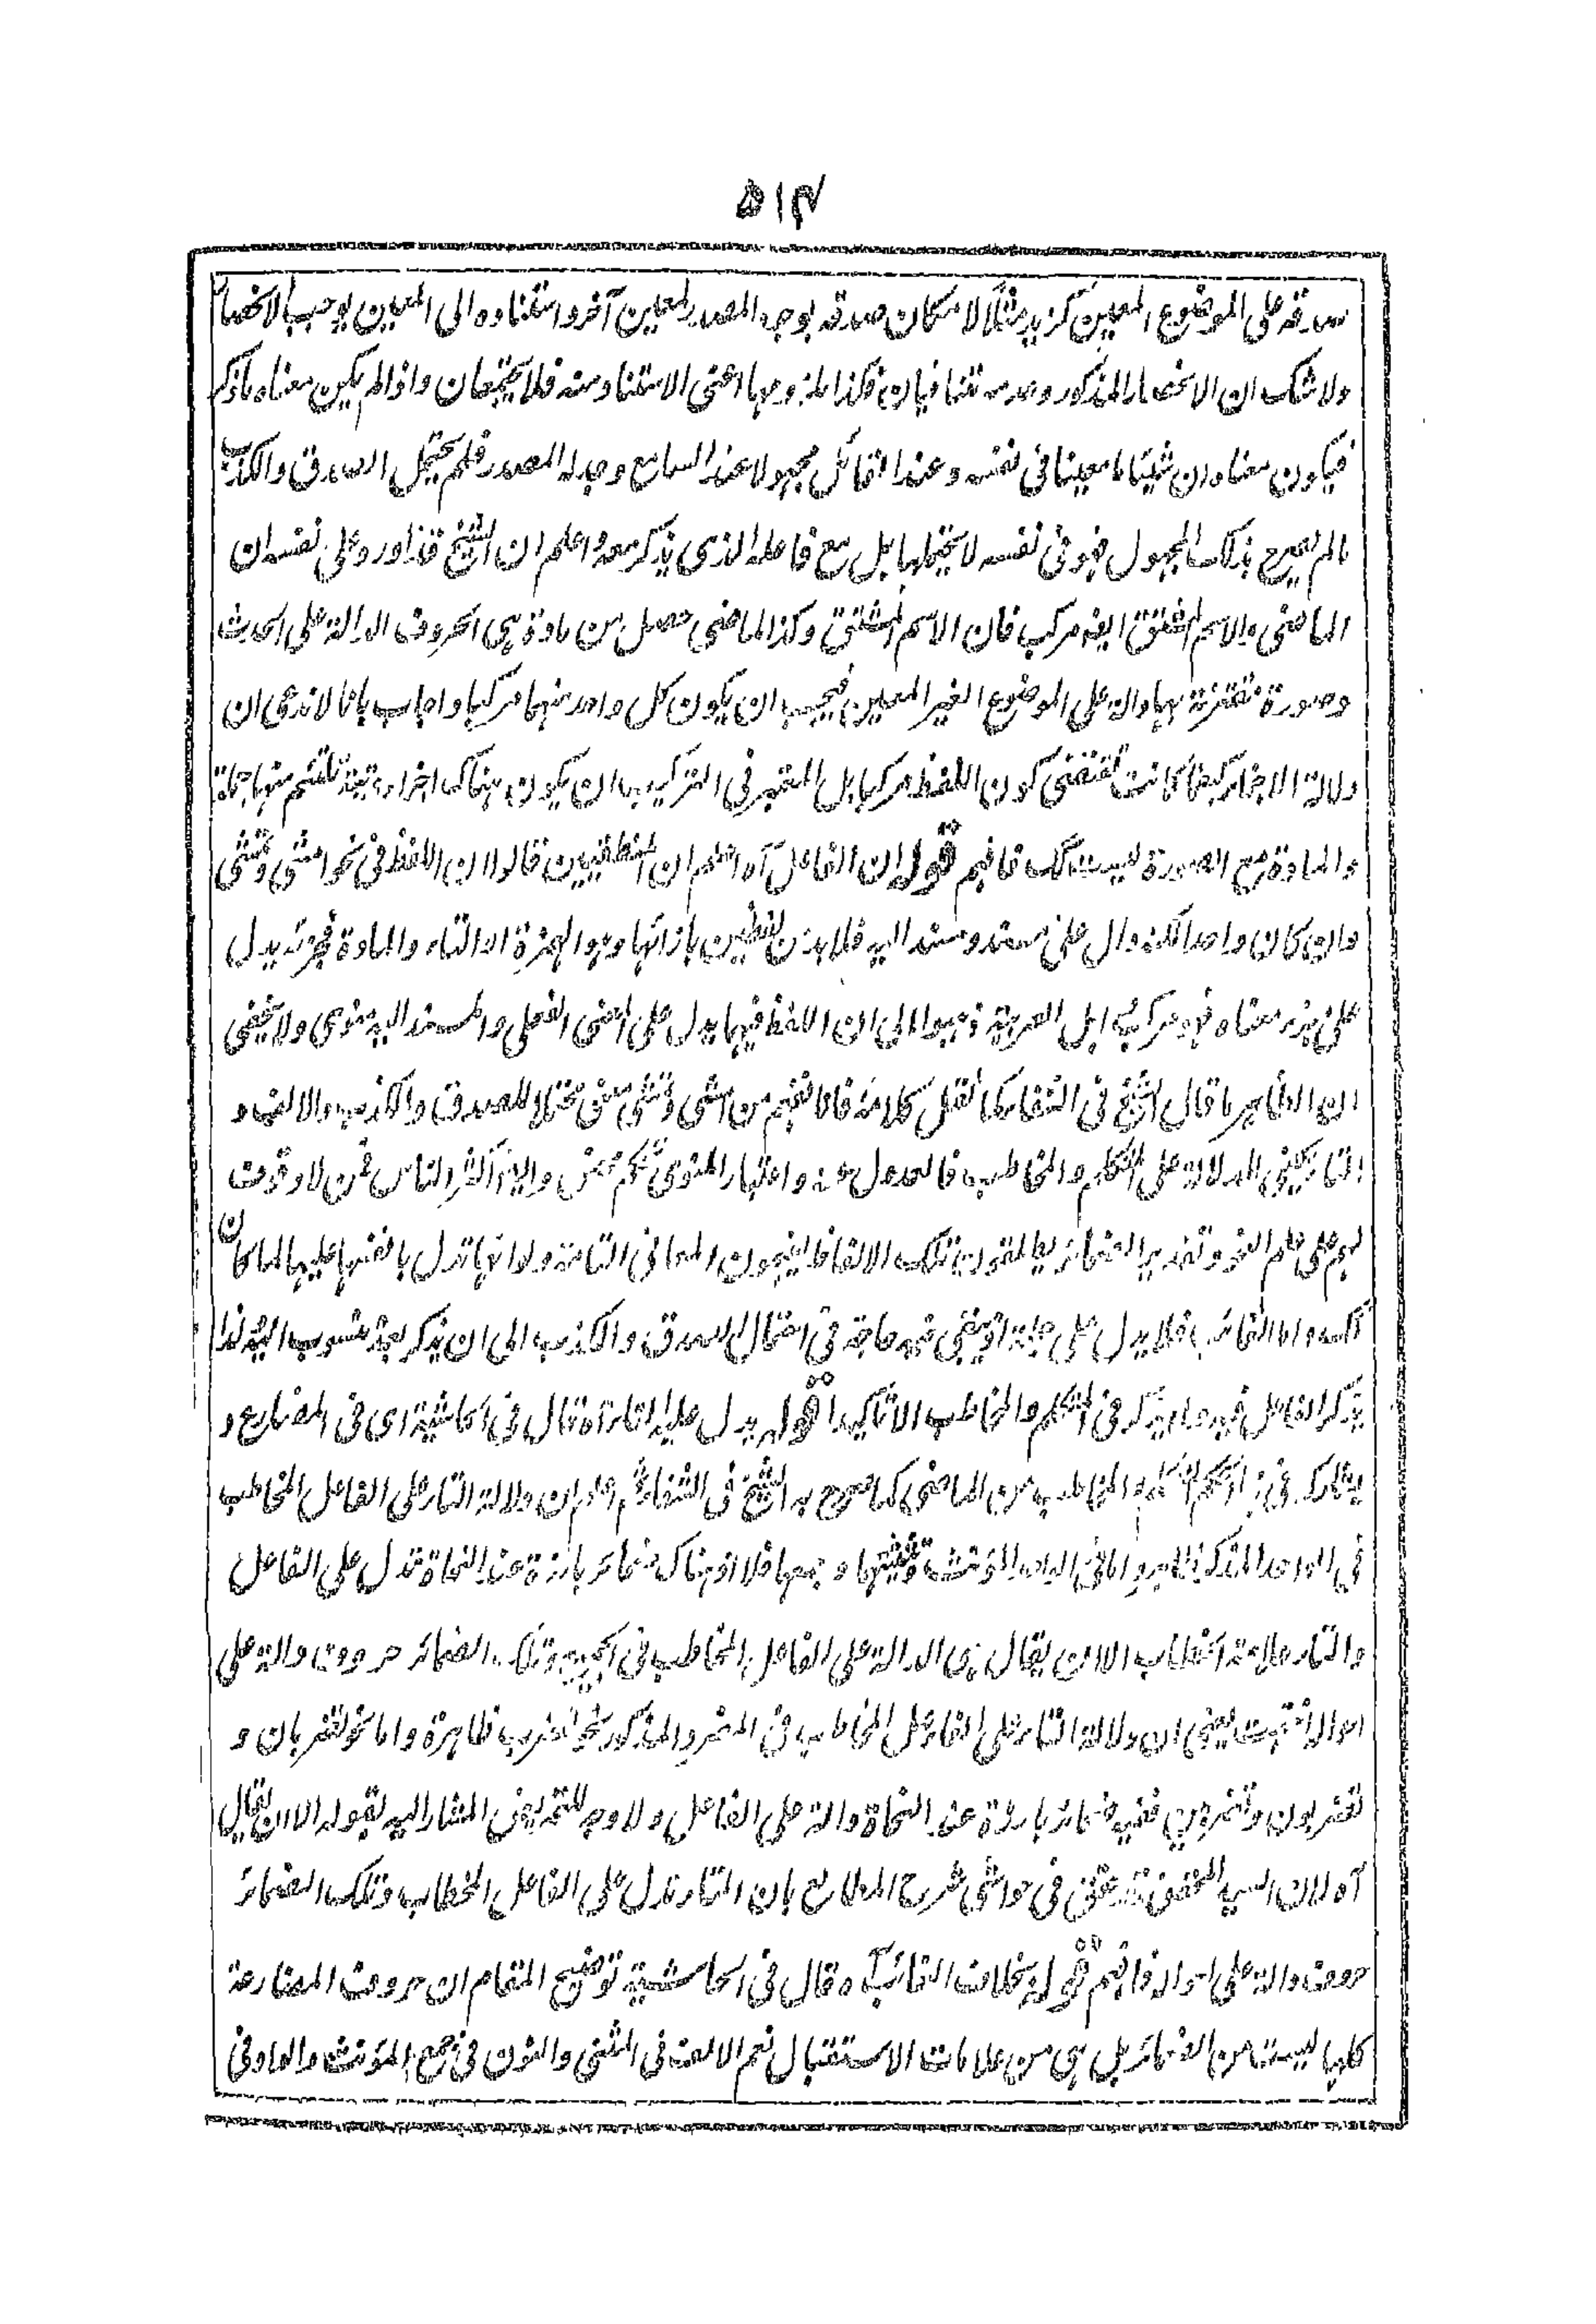 ۵۱۴
صدقه على الموضوع المعين كزيد مثلا لامكان صدقه بوجه المصدر لمعين آخر واستناده الى المعين يوجب الانحصار
ولا شك ان الانحصار المذكور وعدمه تنافيان فكذا ملزوماها اعنى الاستناد ومنه فلا يجتمعان واذا لم يكن معناه ما ذكر
فيكون معناه ان شيئا ما معينا فى نفسه وعند القائل مجهولا عند السامع وجد له المصدر فلم يحتمل الصدق والكذب
ما لم يصرح بذلك المجهول فهو فى نفسه لا يحتملها بل مع فاعله الذى يذكر معه واعلم ان الشيخ قد اورد على نفسه ان
الماضى والاسم المشتق ايضا مركب فان الاسم المشتق وكذا الماضى حصل من مادة هى الحروف الدالة على الحدث
وصورة مقترنة بها دالة على الموضوع الغير المعين فيجب ان يكون كل واحد منهما مركبا واجاب بانا لا ندعى ان
دلالة الاجزاء كيفما كانت تقتضى كون اللفظ مركبا بل المعتبر فى التركيب ان يكون هناك اجزاء مرتبة تلتئم منها جملة
والمادة مع الصورة ليست كك فافهم قوله ان الفاعل آه اعلم ان المنطقيين قالوا ان اللفظ فى نحو امشى وتمشى
وان كان واحدا لكنه دال على مسند ومسند اليه فلا بد من لفظين بازائها وهو الهمزة او التاء والمادة فجزئه يدل
على جزء معناه فهو مركب اهل العربية ذهبوا الى ان اللفظ فيهما يدل على المعنى الفعلى والمسند اليه منوى ولا يخفى
ان الظاهر ما قال الشيخ فى الشفاء كما نقل كلامه فانا نفهم من امشى وتمشى معنى محتملا للصدق والكذب والالف و
التاء يكفى الدلالة على المتكلم والمخاطب فالعدول عنه واعتبار المنوى تحكم محض وايضا اكثر الناس ممن لا وقوف
لهم على علم النحو وتقدير الضمائر يطلقون تلك الالفاظ ويفهمون المعانى التامة ولو لا انها تدل بانفسها عليها لما كان
كك واما الغائب فلا يدل على حدة فيبقى فيه حاجة فى احتمال الصدق والكذب الى ان يذكر بعد منسوب اليه لذا
يذكر الفاعل فيه ولم يذكر فى المتكلم والمخاطب الا تاكيدا قوله يدل عليه التاء آه قال فى الحاشية اى فى المضارع و
يشاركه فى المتكلم والمخاطب من الماضى كما صرح به الشيخ فى الشفاء ثم اعلم ان دلالة التاء على الفاعل المخاطب
فى الواحد المذكر ظاهر واما فى الواحد المؤنث وتثنيتها وجمعها فلا اذ هناك ضمائر بارزة عند النحاة تدل على الفاعل
والتاء علامة الخطاب الا ان يقال هى الدالة على الفاعل المخاطب فى الجميع وتلك الضمائر حروف دالة على
احواله انتهت يعنى ان دلالة التاء على الفاعل المخاطب فى المفرد المذكور نحو تضرب ظاهرة واما نحو تضربان و
تضربون وتضربين ففيه ضمائر بارزة عند النحاة دالة على الفاعل ولا وجه للتمريض المشار اليه بقوله الا ان يقال
آه لان السيد المحقق قد حقق فى حواشى شرح المطالع بان التاء تدل على الفاعل المخطاب وتلك الضمائر
حروف دالة على احواله فافهم قوله بخلاف الغائب آه قال فى الحاشية توضيح المقام ان حروف المضارعة
كلها ليست من الضمائر بل هى من علامات الاستقبال نعم الالف فى المثنى والنون فى جمع المؤنث والواو فى